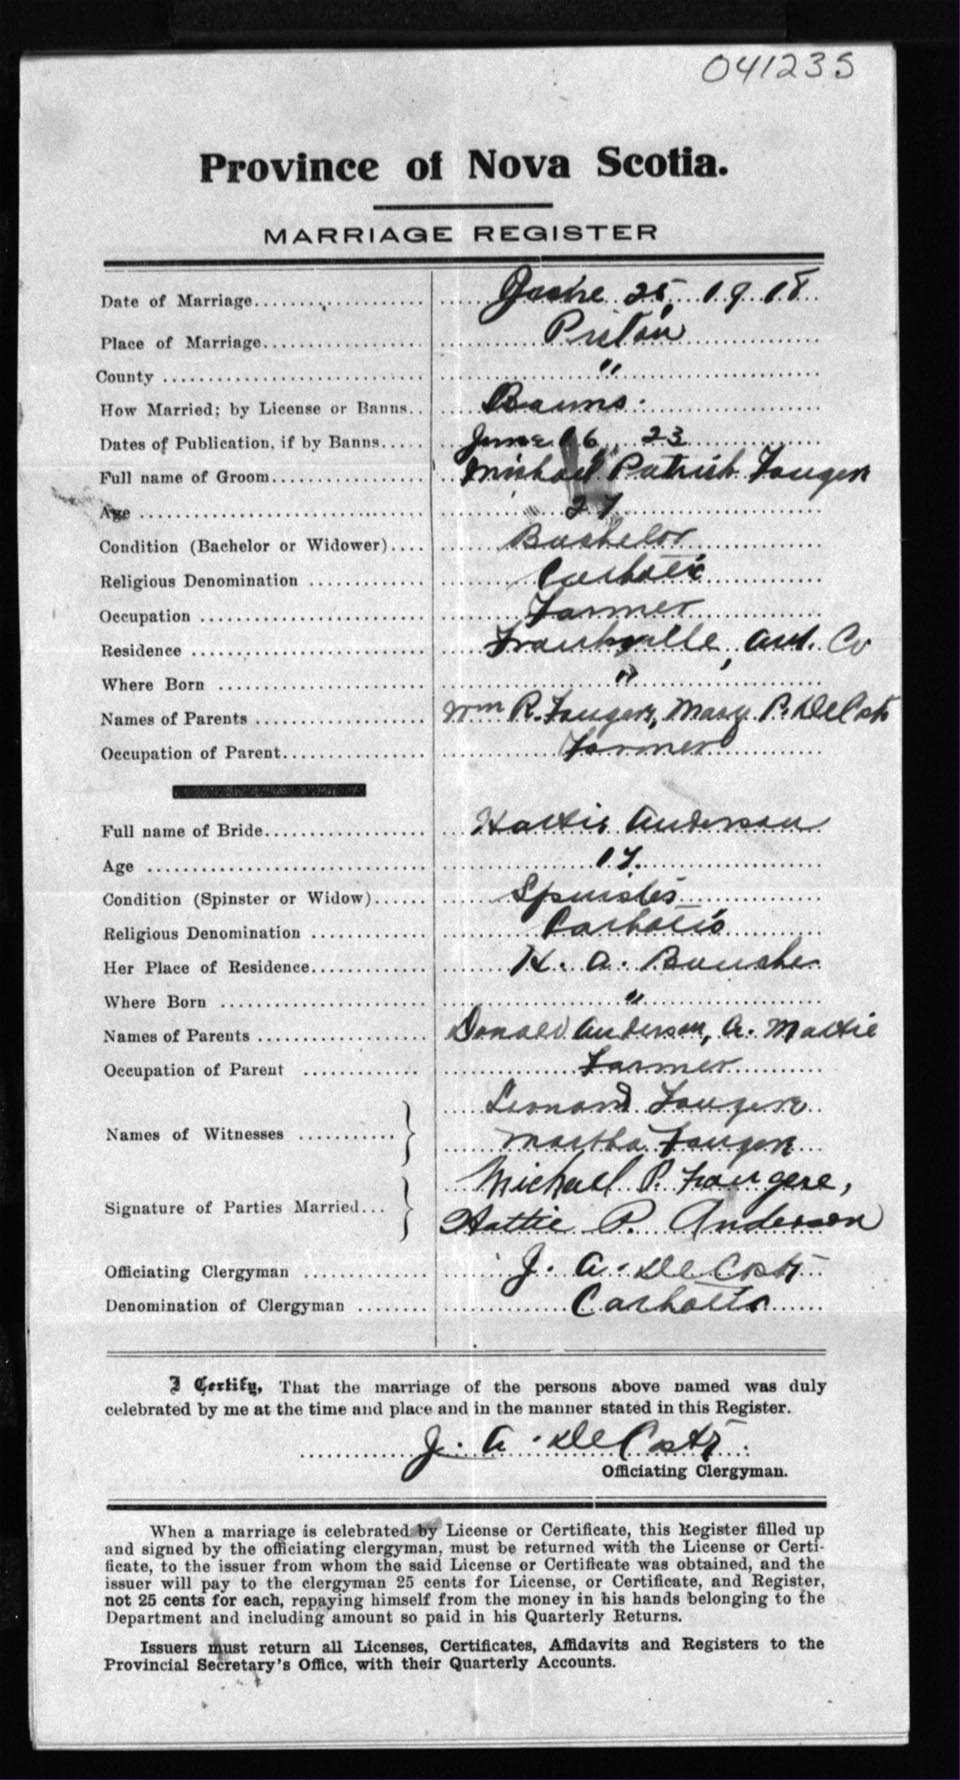 041235
Province of Nova Scotia.
MARRIAGE REGISTER
Date of Marriage.................... June 25, 1918
Place of Marriage.................
County ............................ "
How Married; by License or Banns.. Banns.
Dates of Publication, if by Banns..... June 16, 23
Full name of Groom................. Michael Patrick Fougere
Age ............................... 27
Condition (Bachelor or Widower).... Bachelor
Religious Denomination ............ Catholic
Occupation ........................ Farmer
Residence ......................... Frankville, Ant. Co
Where Born ...................... "
Names of Parents .................. Wm R. Fougere, Mary P. DeCoste
Occupation of Parent............... Farmer
Full name of Bride................. Hattie Anderson
Age ............................... 17.
Condition (Spinster or Widow)...... Spinster
Religious Denomination ............ Catholic
Her Place of Residence............. H. a. Bouche
Where Born ...................... "
Names of Parents .................. Donald Anderson, A. Mattie
Occupation of Parent ............. Farmer
Leonard Fougere
Names of Witnesses ...........
Martha Fougere
Michael P. Fougere,
Signature of Parties Married...
Hattie P. Anderson
Officiating Clergyman ............. J. A. DeCoste
Denomination of Clergyman ........ Catholic
I Certify, That the marriage of the persons above named was duly
celebrated by me at the time and place and in the manner stated in this Register.
J. A. DeCoste.
Officiating Clergyman.
When a marriage is celebrated by License or Certificate, this Register filled up
and signed by the officiating clergyman, must be returned with the License or Certi-
ficate, to the issuer from whom the said License or Certificate was obtained, and the
issuer will pay to the clergyman 25 cents for License, or Certificate, and Register,
not 25 cents for each, repaying himself from the money in his hands belonging to the
Department and including amount so paid in his Quarterly Returns.
Issuers must return all Licenses, Certificates, Affidavits and Registers to the
Provincial Secretary's Office, with their Quarterly Accounts.